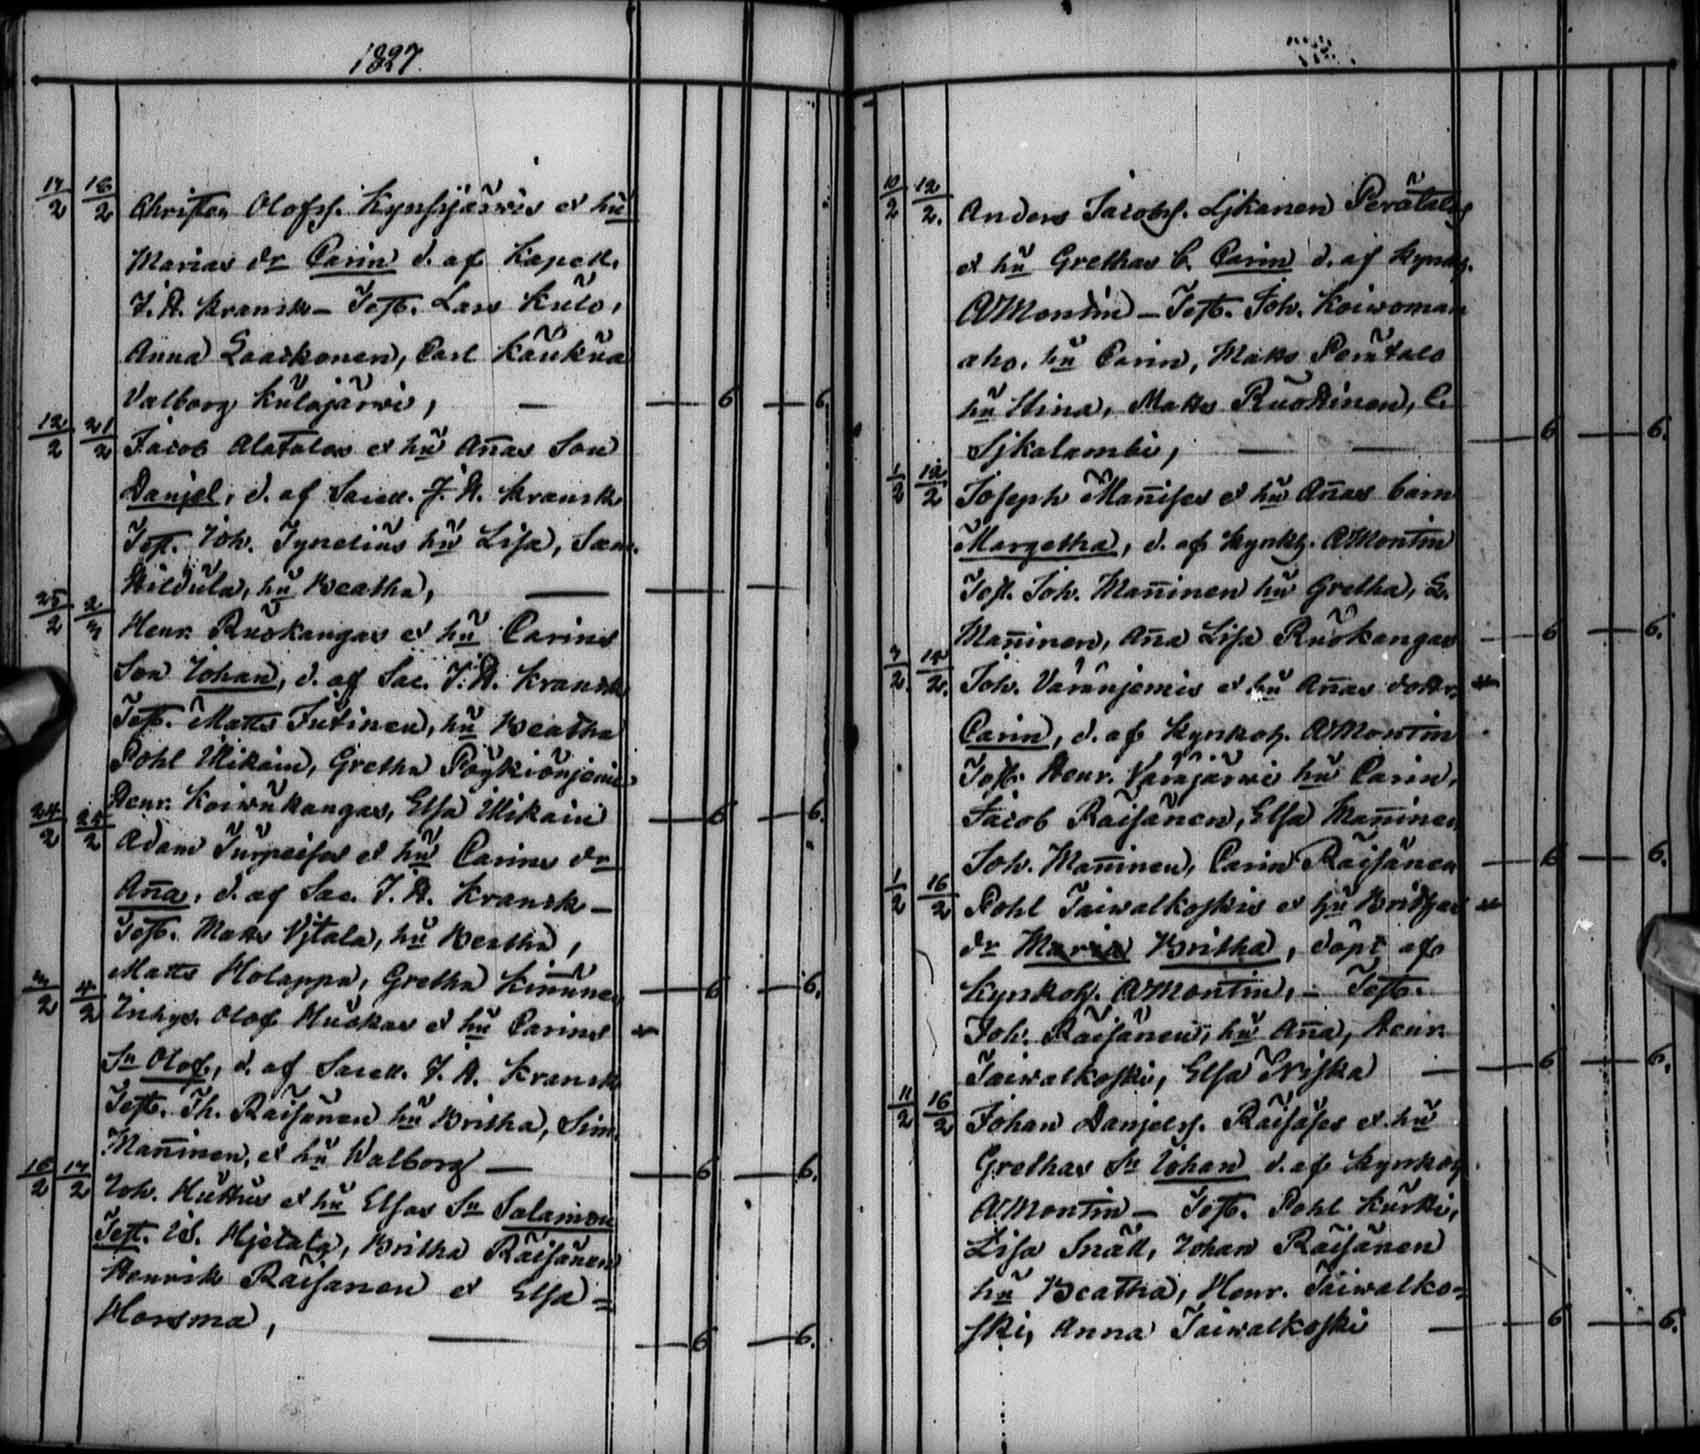 1827
17/2 18/2 Christer Olofss. Kynsijärvis et hu
Marias dr Carin d. af Kapell.
J. H. Kransk – Test. Lars Kulo,
Anna Laackonen, Carl Kaukua
Valborg Kulojärvi, — — 6 — 6.
12/2 21/2 Jacob Alatalos et hu Anas Son
Danjel, d. af Sacell. J. H. Kransk
Test. Joh. Tynelius hu Lisa, Sam.
Hildula, hu Beatha, — — —
25/2 2/3 Henr. Ruokangas et hu Carins
Son Johan, d. af Sac. J. H. Kransk
Test. Matts Jutinen, hu Beatha
Pohl Mikain, Gretha Pöykiönjemi
Henr. Koiwukangas, Elsa Mikain — 6 — 6.
24/2 25/2 Adam Turpeises et hu Carins dr
Ana, d. af Sac. J. H. Kransk –
Test. Matts Vjtala, hu Beatha,
Matts Holappa, Gretha Kinunen — 6 — 6.
3/2 4/2 Inhys. Olof Huokas et hu Carins
Sn Olof, d. af Sacell. J. H. Kransk
Test. Th. Räisänen hu Britha, Sim.
Maninen, et hu Walborg — — 6 — 6.
16/2 17/2 Joh. Huttus et hu Elsas Sn Salamon
Test. Is. Hjetala, Britha Räisänen
Henrik Räisänen et Elsa =
Horsma, — — 6 — 6.
10/2 12/2. Anders Jacobss. Ljkanen Perätalos
et hu Grethas b. Carin d. af Kyrkoh.
A Montin – Test. Joh. Koiwoman
aho, hu Carin, Matts Perätalo
hu Stina, Matts Ruottinen, C.
Sjkalambi, — — — 6 — 6.
1/2 12/2 Joseph Manises et hu Anas barn
Margetha, d. af Kyrkh. A Montin
Test. Joh. Maninen hu Gretha, L.
Maninen, Ana Lisa Ruokangas — 6 — 6.
3/2. 14/2. Joh. Väränjemis et hu Anas dottr.
Carin, d. af Kyrkoh. A Montin
Test. Henr. Väräjärvi hu Carin,
Jacob Räisänen, Elsa Maninen
Joh. Maninen, Carin Räisänen — 6 — 6.
1/2 16/2 Pohl Taiwalkoskis et hu Brithas
dr Maria Britha, döpt af
Kyrkoh. A Montin, – Test.
Joh. Räisänen, hu Ana, Henr.
Taiwalkoski, Elsa Iriska — — 6 — 6.
11/2 16/2 Johan Danjelss. Räisäses et hu
Grethas Sn Johan d. af Kyrkoh
A Montin – Test. Pohl Kurki,
Lisa Snäll, Johan Räisänen
hu Beatha, Henr. Taiwalko=
ski, Anna Taiwalkoski — — 6 — 6.